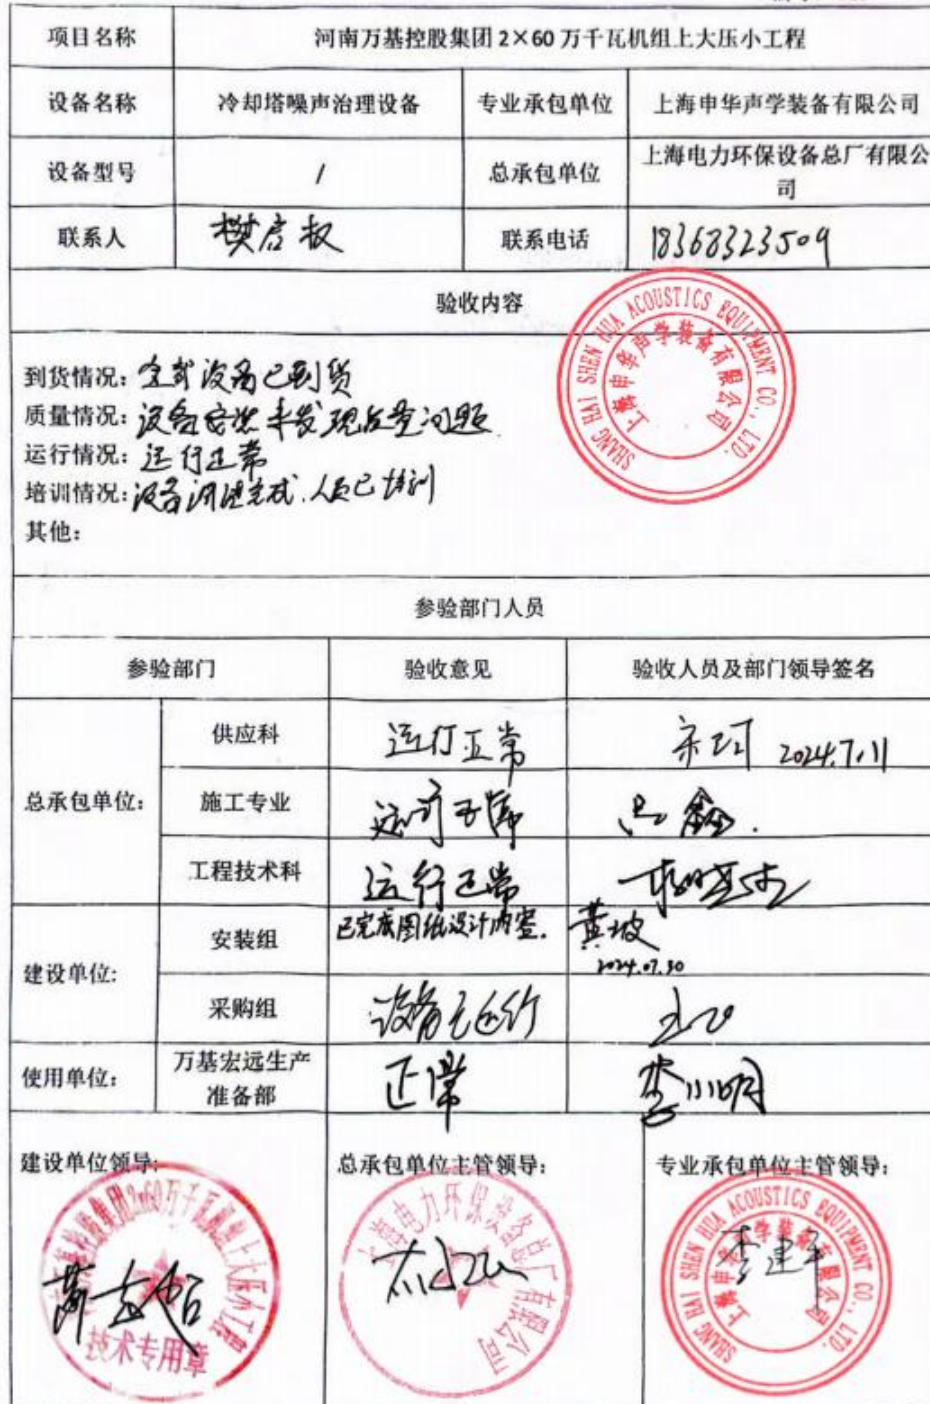 项目名称 河南万基控股集团2×60万千瓦机组上大压小工程
设备名称 冷却塔噪声治理设备 专业承包单位 上海申华声学装备有限公司
设备型号 / 总承包单位 上海电力环保设备总厂有限公
司
联系人 樊启权 联系电话 18368323509
验收内容
SHANG HAI SHEN HUA ACOUSTICS EQUIPMENT CO., LTD.
上海申华声学装备有限公司
到货情况：全部设备已到货
质量情况：设备安装未发现质量问题
运行情况：运行正常
培训情况：设备调试完成.人员已培训
其他：
参验部门人员
参验部门 验收意见 验收人员及部门领导签名
总承包单位：
供应科 运行正常 2024.7.11
施工专业 运行正常 吕鑫.
工程技术科 运行正常
建设单位:
安装组 已完成图纸设计内容. 黄坡
2024.07.30
采购组 设备已运行
使用单位： 万基宏远生产
准备部 正常 李小明
建设单位领导: 总承包单位主管领导： 专业承包单位主管领导：
控股集团2×60万千瓦机组上大压小工程
技术专用章
上海电力环保设备总厂有限公司
SHANG HAI SHEN HUA ACOUSTICS EQUIPMENT CO., LTD.
上海申华声学装备有限公司
李建平